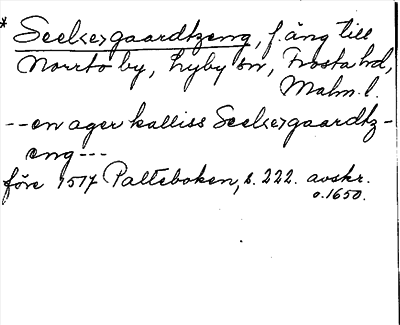 * Seel<e>gaardtzeng, f. äng till
Norrto by, Lyby sn, Frosta hd,
Malm. l.
-- en ager kalliss Seel<e>gaardtz-
eng ---
före 1517 Palteboken, s. 222. avskr.
o. 1650.